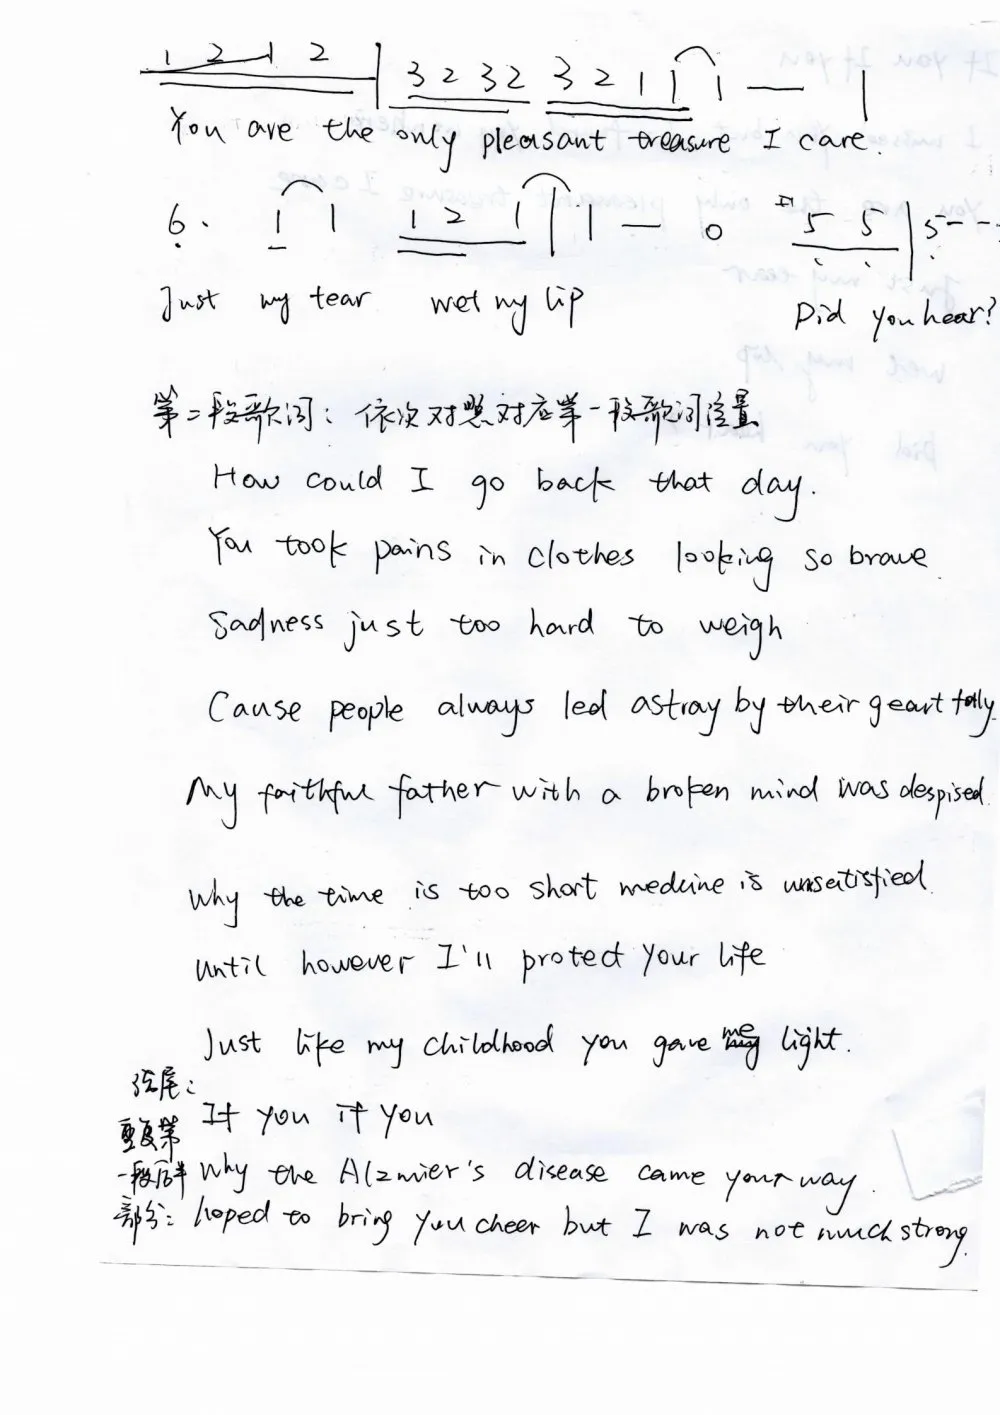 1 2 1 2 | 3 2 3 2 3 2 1 1 1 — |
You are the only pleasant treasure I care.
6. 1 1 1 2 1 | 1 — 0 5 5 | 5 - - -
Just my tear wet my lip Did you hear?
第二段歌词：依次对照对应第一段歌词位置
How could I go back that day.
You took pains in clothes looking so brave
Sadness just too hard to weigh
Cause people always led astray by their geart
My faithful father with a broken mind was despised.
Why the time is too short medcine is unsatisfied.
Until however I'll protect your life
Just like my childhood you gave me light.
弦尾：
If you if you
重复第
一段后半 Why the Alzmier's disease came your way.
部分： hoped to bring you cheer but I was not much strong.